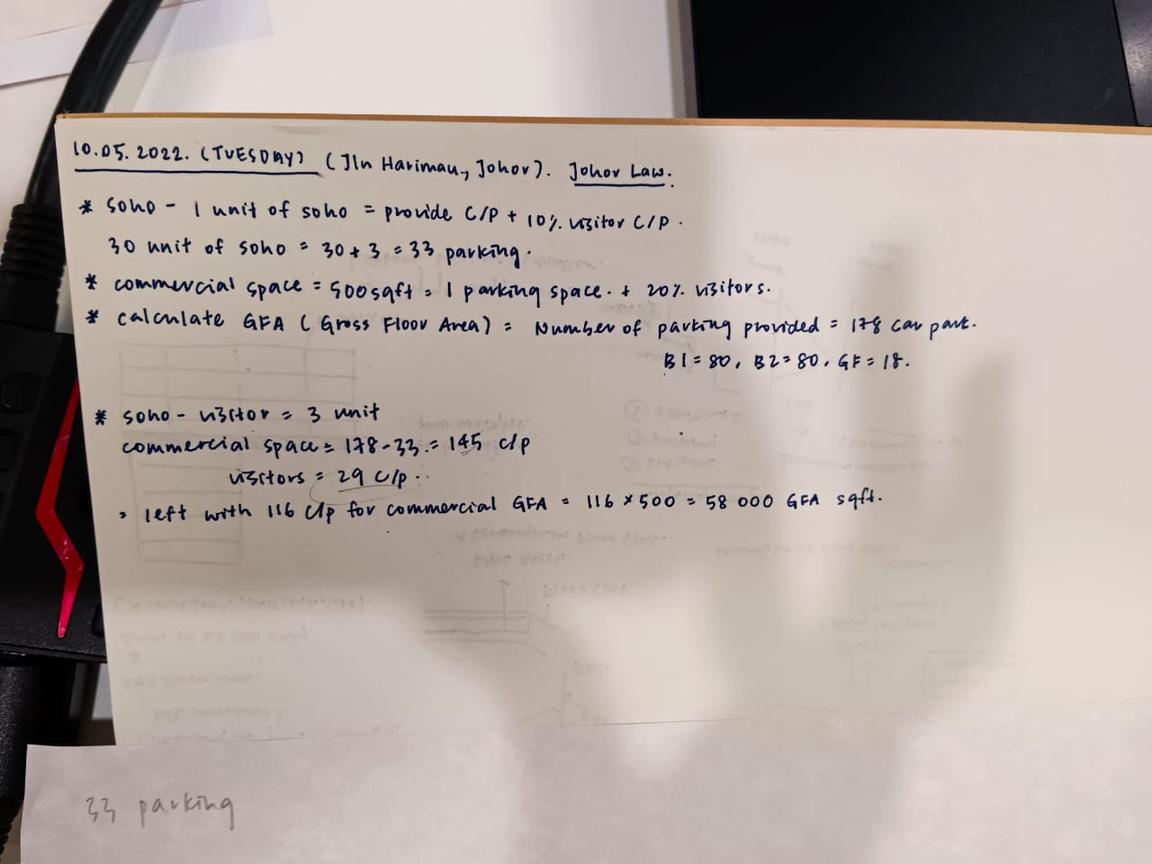 10.05.2022. (TUESDAY) (Jln Harimau, Johor). Johor Law.
* SOHO - 1 unit of soho = provide C/P + 10% visitor C/P.
30 unit of soho = 30 + 3 = 33 parking.
* commercial space = 500sqft = 1 parking space. + 20% visitors.
* calculate GFA (Gross Floor Area) = Number of parking provided = 178 car park.
B1 = 80, B2 = 80, GF = 18.
* SOHO - visitor = 3 unit
commercial space = 178 - 33 = 145 c/p
visitors = 29 c/p.
= left with 116 c/p for commercial GFA = 116 × 500 = 58 000 GFA sqft.
33 parking